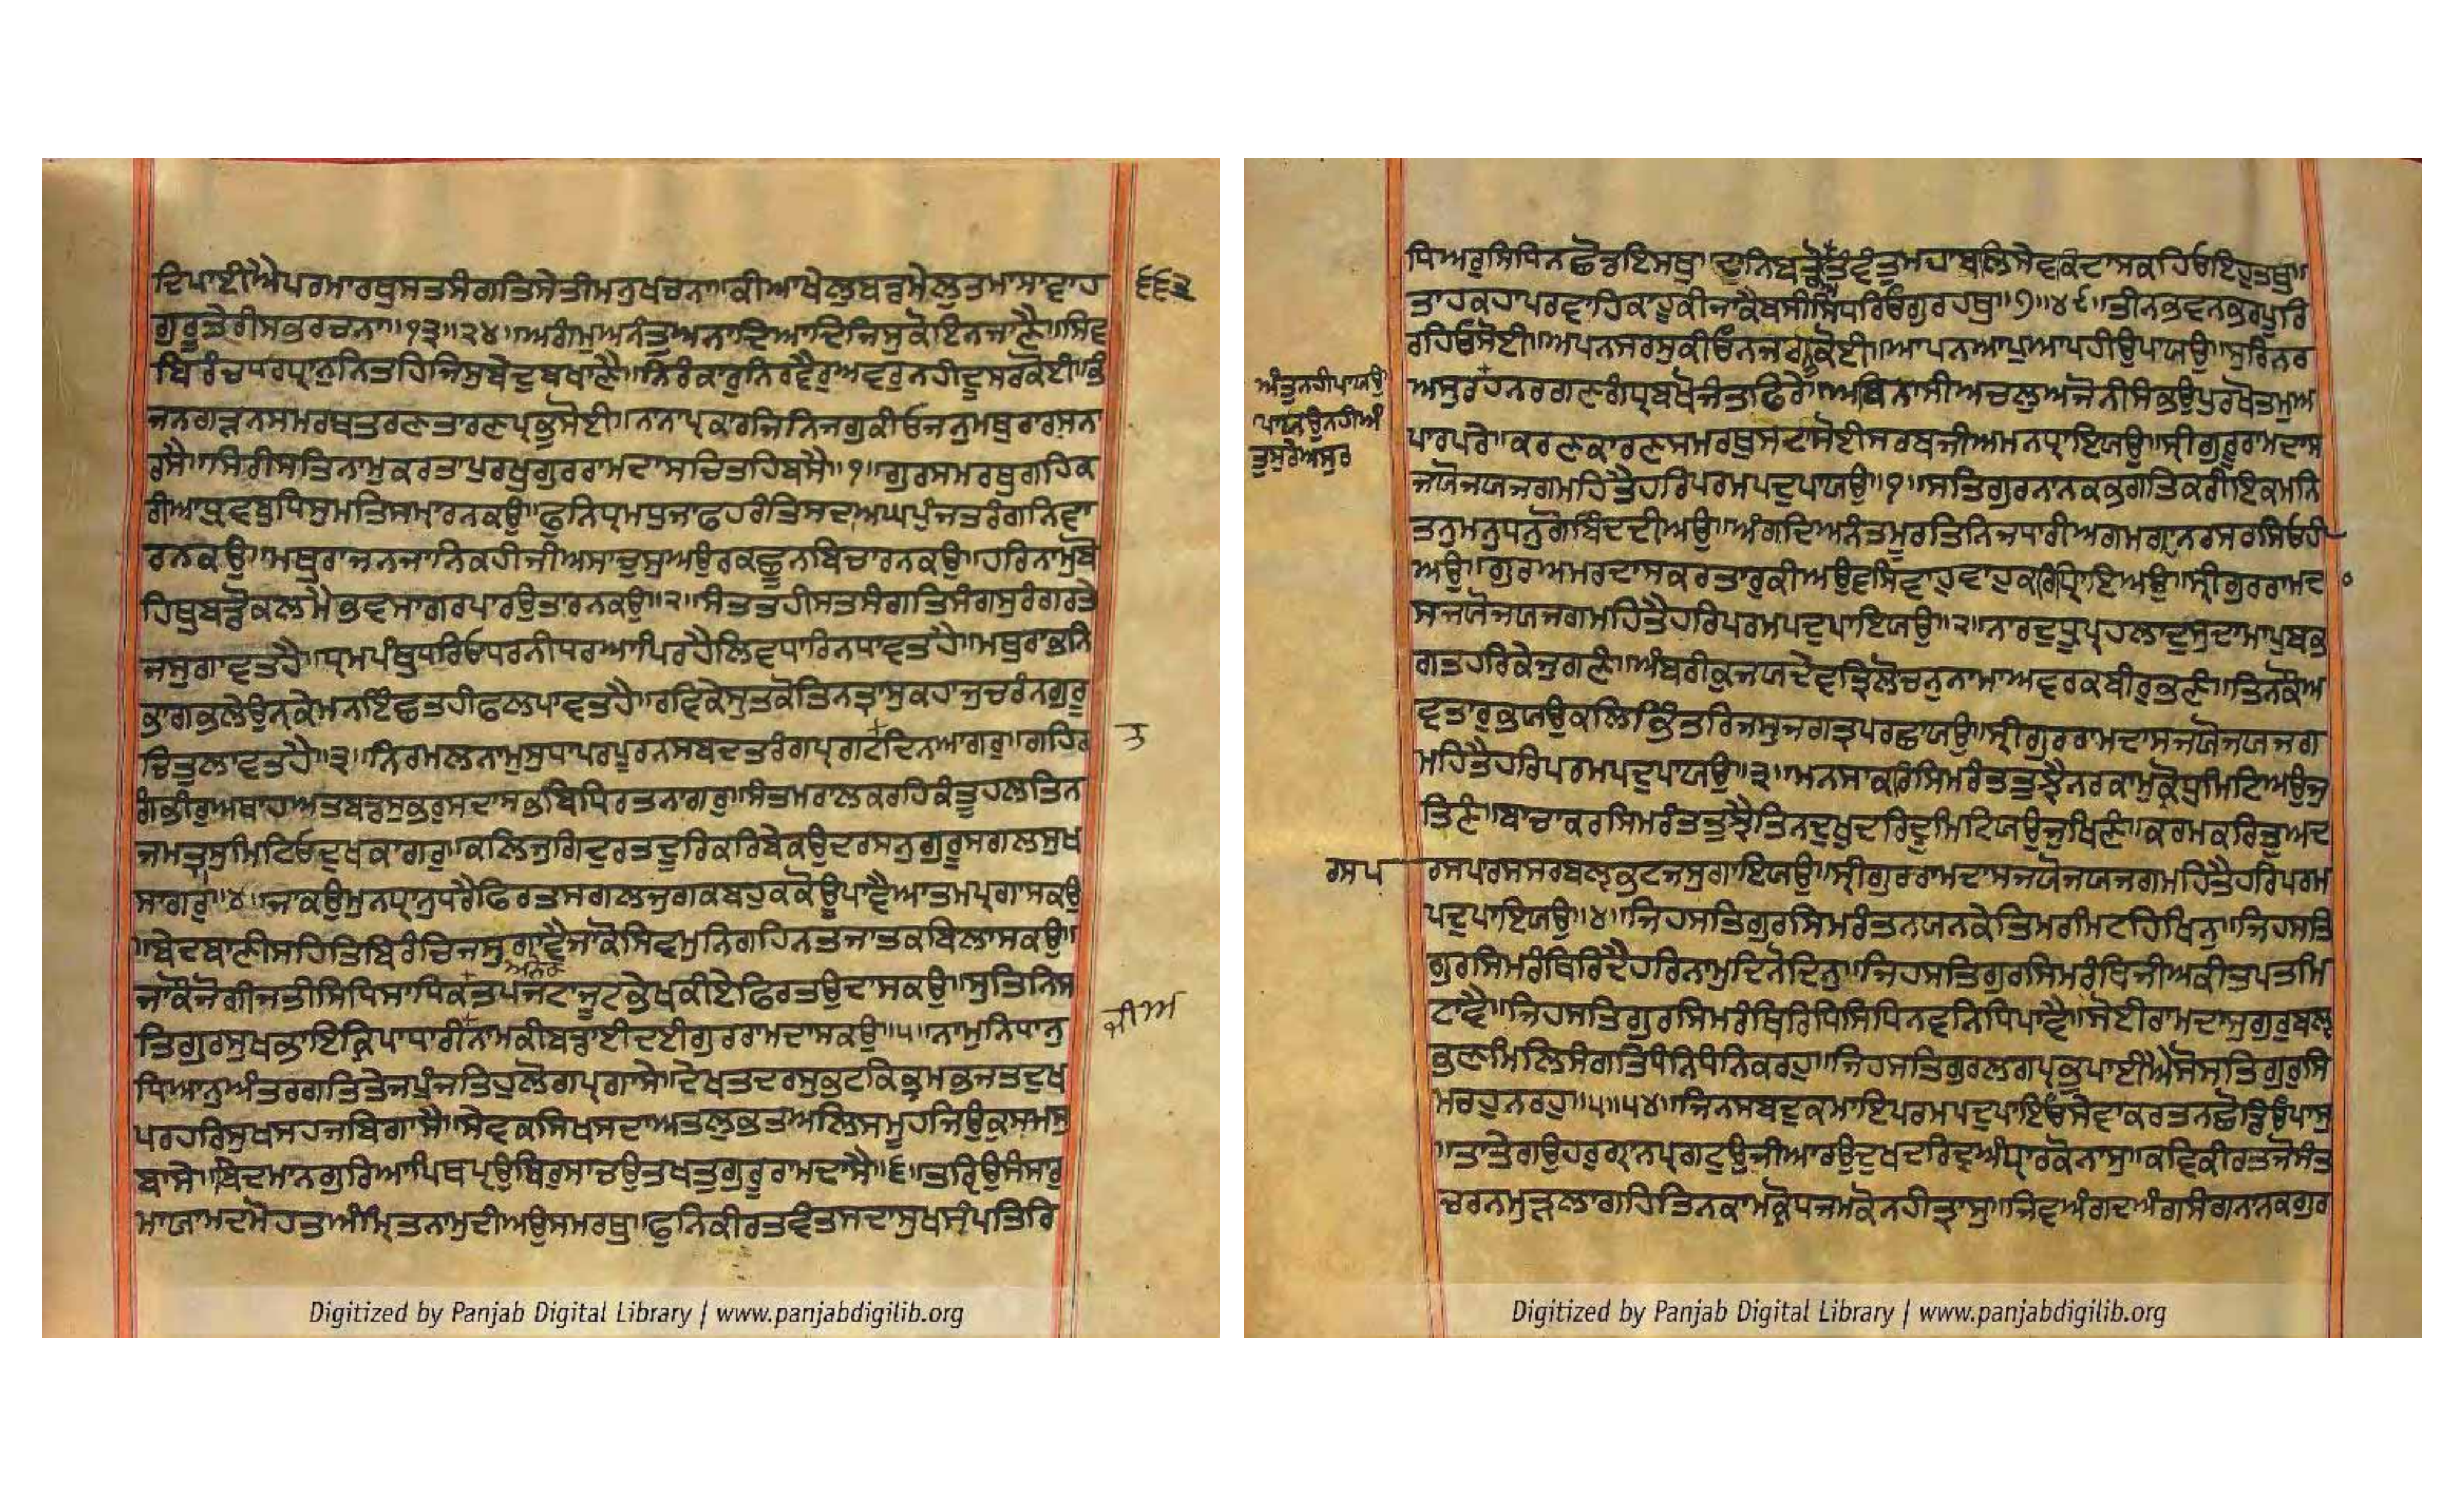 ਦਿਪਾਈਐਪਰਮਾਰਥੁਸਤਸੰਗਤਿਸੇਤੀਮਨੁਖਚਨਾ॥ਕੀਆਖੇਲੁਬਡਮੇਲੁਤਮਾਸਾਵਾਹ
੬੬੨
ਗੁਰੂਤੇਰੀਸਭਰਚਨਾ॥੧੩॥੨੪॥ਅਗੰਮੁਅਨੰਤੁਅਨਾਦਿਆਦਿਜਿਸੁਕੋਇਨਜਾਣੈ॥ਸਿਵ
ਬਿਰੰਚਧਰਧ੍ਯਾਨੁਨਿਤਹਿਜਿਸੁਬੇਦੁਬਖਾਣੈ॥ਨਿਰੰਕਾਰੁਨਿਰਵੈਰੁਅਵਰੁਨਹੀਦੂਸਰਕੋਈ॥ਭੰ
ਜਨਗੜਨਸਮਰਥਤਰਣਤਾਰਣਪ੍ਰਭੁਸੋਈ॥ਨਾਨਾਪ੍ਰਕਾਰਜਿਨਿਜਗੁਕੀਓਜਨੁਮਥੁਰਾਰਸਨਾ
ਰਸੈ॥ਸਿਰੀਸਤਿਨਾਮੁਕਰਤਾਪੁਰਖੁਗੁਰਰਾਮਦਾਸਚਿਤਹਿਬਸੈ॥੧॥ਗੁਰਸਮਰਥੁਗਹਿਕ
ਰੀਆਧ੍ਰੁਵਬੁਧਿਸੁਮਤਿਸਮ੍ਹਾਰਨਕਉ॥ਫੁਨਿਧ੍ਰਮਧੁਜਾਫਹਰੰਤਿਸਦਾਅਘਪੁੰਜਤਰੰਗਨਿਵਾ
ਰਨਕਉ॥ਮਥੁਰਾਜਨਜਾਨਿਕਹੀਜੀਅਸਾਚੁਸੁਅਉਰਕਛੂਨਬਿਚਾਰਨਕਉ॥ਹਰਿਨਾਮੁਬੋ
ਹਿਥੁਬਡੌਕਲਮੇਭਵਸਾਗਰਪਾਰਉਤਾਰਨਕਉ॥੨॥ਸੰਤਤਹੀਸਤਸੰਗਤਿਸੰਗਸੁਰੰਗਰਤੇ
ਜਸੁਗਾਵਤਹੈ॥ਧ੍ਰਮਪੰਥੁਧਰਿਓਧਰਨੀਧਰਆਪਿਰਹੇਲਿਵਧਾਰਿਨਧਾਵਤਹੈ॥ਮਥੁਰਾਭਨਿ
ਭਾਗਭਲੇਉਨ੍ਹਕੇਮਨਇੰਛਤਹੀਫਲਪਾਵਤਹੈ॥ਰਵਿਕੇਸੁਤਕੋਤਿਨਤ੍ਰਾਸੁਕਹਾਜੁਚਰੰਨਗੁਰੂ
ਚਿਤੁਲਾਵਤਹੈ॥੩॥ਨਿਰਮਲਨਾਮੁਸੁਧਾਪਰਪੂਰਨਸਬਦਤਰੰਗਪ੍ਰਗਟਦਿਨਆਗਰੁ॥ਗਹਿਰ
ਤ
ਗੰਭੀਰੁਅਥਾਹਅਤਬਡਸੁਭਰੁਸਦਾਸਭਬਿਧਿਰਤਨਾਗਰੁ॥ਸੰਤਮਰਾਲਕਰਹਿਕੰਤੂਹਲਤਿਨ
ਜਮਤ੍ਰਾਸੁਮਿਟਿਓਦੁਖਕਾਗਰੁ॥ਕਲਿਜੁਗਿਦੁਰਤਦੂਰਿਕਰਿਬੇਕਉਦਰਸਨੁਗੁਰੂਸਗਲਸੁਖ
ਸਾਗਰੁ॥੪॥ਜਾਕਉਮੁਨਧ੍ਯਾਨੁਧਰੈਫਿਰਤਸਗਲਜੁਗਕਬਹੁਕਕੋਊਪਾਵੈਆਤਮਪ੍ਰਗਾਸਕਉ
॥ਬੇਦਬਾਣੀਸਹਿਤਿਬਿਰੰਚਿਜਸੁਗਾਵੈਜਾਕੋਸਿਵਮੁਨਿਗਹਿਨਤਜਾਤਕਬਿਲਾਸਕਉ॥
ਅਨਿਕ
ਜਾਕੌਜੋਗੀਜਤੀਸਿਧਿਸਾਧਿਕਤਪਜਟਾਜੂਟਭੇਖਕੀਏਫਿਰਤਉਦਾਸਕਉ॥ਸੁਤਿਨਿਸ
ਤਿਗੁਰਸੁਖਭਾਇਕ੍ਰਿਪਾਧਾਰੀਨਾਮਕੀਬਡਾਈਦਈਗੁਰਰਾਮਦਾਸਕਉ॥੫॥ਨਾਮੁਨਿਧਾਨੁ
ਜੀਅ
ਧਿਆਨੁਅੰਤਰਗਤਿਤੇਜਪੁੰਜਤਿਹੁਲੋਗਪ੍ਰਗਾਸੇ॥ਦੇਖਤਦਰਸੁਭਟਕਿਭ੍ਰਮਭਜਤਦੁਖ
ਪਰਹਰਿਸੁਖਸਹਜਬਿਗਾਸੇ॥ਸੇਵਕਸਿਖਸਦਾਅਤਲੁਭਤਅਲਿਸਮੂਹਜਿਉਕੁਸਮਸੁ
ਬਾਸੇ॥ਬਿਦਮਾਨਗੁਰਿਆਪਿਥਪ੍ਯਉਥਿਰੁਸਾਚਉਤਖਤੁਗੁਰੂਰਾਮਦਾਸੈ॥੬॥ਤਰਿ੍ਯਉਸੰਸਾਰੁ
ਮਾਯਾਮਦਮੋਹਤਅੰਮ੍ਰਿਤਨਾਮੁਦੀਅਉਸਮਰਥੁ॥ਫੁਨਿਕੀਰਤਵੰਤਸਦਾਸੁਖਸੰਪਤਿਰਿ
ਧਿਅਰੁਸਿਧਿਨਛੋਡਇਸਥੁ॥ਦਾਨਿਬਡੌਤਵੰਤੁਮਹਾਬਲਿਸੇਵਕਦਾਸਕਹਿਓਇਹੁਤਥੁ॥
ਤਾਹਕਹਾਪਰਵਾਹਿਕਾਹੂਕੀਜਾਕੈਬਸੀਸਿਧਰਿਓਗੁਰਹਥੁ॥੭॥੪੯॥ਤੀਨਭਵਨਭਰਪੂਰਿ
ਰਹਿਓਸੋਈ॥ਅਪਨਸਰਸੁਕੀਓਨਜਗਤਕੋਈ॥ਆਪਨਆਪੁਆਪਹੀਉਪਾਯਉ॥ਸੁਰਿਨਰ
ਅੰਤੁਨਹੀਪਾਯਉ
ਪਾਯਉਨਹੀਅੰ
ਤੁਸੁਰੇਅਸੁਰ
ਅਸੁਰਹਨਰਗਣਗੰਧ੍ਰਬਖੋਜੰਤਫਿਰੇ॥ਅਬਿਨਾਸੀਅਚਲੁਅਜੋਨੀਸਿਭਉਪੁਰਖੋਤਮੁਅ
ਪਾਰਪਰੇ॥ਕਰਣਕਾਰਣਸਮਰਥੁਸਦਾਸੋਈਸਰਬਜੀਅਮਨਧ੍ਯਾਇਯਉ॥ਸ੍ਰੀਗੁਰੂਰਾਮਦਾਸ
ਜਯੋਜਯਜਗਮਹਿਤੈਹਰਿਪਰਮਪਦੁਪਾਯਉ॥੧॥ਸਤਿਗੁਰਨਾਨਕਭਗਤਿਕਰੀਇਕਮਨਿ
ਤਨੁਮਨੁਧਨੁਗੋਬਿੰਦਦੀਅਉ॥ਅੰਗਦਿਅਨੰਤਮੂਰਤਿਨਿਜਧਾਰੀਅਗਮਗ੍ਯਾਨਰਸਰਸਿਓਹੀ
ਅਉ॥ਗੁਰਅਮਰਦਾਸਕਰਤਾਰੁਕੀਅਉਵਸਿਵਾਹੁਵਾਹੁਕਰਿਧ੍ਯਾਇਅਉ॥ਸ੍ਰੀਗੁਰਰਾਮਦ
ਸਜਯੋਜਯਜਗਮਹਿਤੈਹਰਿਪਰਮਪਦੁਪਾਇਯਉ॥੨॥ਨਾਰਦੁਧ੍ਰੂਪ੍ਰਹਲਾਦੁਸੁਦਾਮਾਪੁਬਭ
ਗਤਹਰਿਕੇਜੁਗਣੰ॥ਅੰਬਰੀਕੁਜਯਦੇਵਤ੍ਰਿਲੋਚਨੁਨਾਮਾਅਵਰਕਬੀਰੁਭਣੰ॥ਤਿਨਕੌਅ
ਵਤਾਰੁਭਯਉਕਲਿਭਿੰਤਰਿਜਸੁਜਗਤ੍ਰਪਰਛਾਯਉ॥ਸ੍ਰੀਗੁਰਰਾਮਦਾਸਜਯੋਜਯਜਗ
ਮਹਿਤੈਹਰਿਪਰਮਪਦੁਪਾਯਉ॥੩॥ਮਨਸਾਕਰਿਸਿਮਰੰਤਤੁਝੈਨਰਕਾਮੁਕ੍ਰੋਧੁਮਿਟਿਅਉਜੁ
ਤਿਣੰ॥ਬਾਚਾਕਰਸਿਮਰੰਤਤੁਝੈਤਿਨਦੁਖੁਦਰਿਦ੍ਰੁਮਿਟਿਯਉਜੁਖਿਣੰ॥ਕਰਮਕਰਿਤੁਅਦ
ਰਸਪ
ਰਸਪਰਸਸਰਬਲ੍ਯਭਟਜਸੁਗਾਇਯਉ॥ਸ੍ਰੀਗੁਰਰਾਮਦਾਸਜਯੋਜਯਜਗਮਹਿਤੈਹਰਿਪਰਮ
ਪਦੁਪਾਇਯਉ॥੪॥ਜਿਹਸਤਿਗੁਰਸਿਮਰੰਤਨਯਨਕੇਤਿਮਰਮਿਟਹਿਖਿਨੁ॥ਜਿਹਸਤਿ
ਗੁਰਸਿਮਰੰਥਿਰਿਦੈਹਰਿਨਾਮੁਦਿਨੋਦਿਨੁ॥ਜਿਹਸਤਿਗੁਰਸਿਮਰੰਥਿਜੀਅਕੀਤਪਤਮਿ
ਟਾਵੈ॥ਜਿਹਸਤਿਗੁਰਸਿਮਰੰਥਿਰਿਧਿਸਿਧਿਨਵਨਿਧਿਪਾਵੈ॥ਸੋਈਰਾਮਦਾਸੁਗੁਰੁਬਲ੍ਯ
ਭਣਮਿਲਿਸੰਗਤਿਧੰਨਿਧੰਨਿਕਰਹੁ॥ਜਿਹਸਤਿਗੁਰਲਗਪ੍ਰਭੁਪਾਈਐਸੋਸਤਿਗੁਰੁਸਿ
ਮਰਹੁਨਰਹੁ॥੫॥੫੪॥ਜਿਨਸਬਦੁਕਮਾਇਪਰਮਪਦੁਪਾਇਓਸੇਵਾਕਰਤਨਛੋਡਿਓਪਾਸੁ
॥ਤਾਤੇਗਉਹਰੁਗ੍ਯਾਨਪ੍ਰਗਟੁਉਜੀਆਰਉਦੁਖਦਰਿਦ੍ਰਅੰਧ੍ਯਾਰਕੋਨਾਸੁ॥ਕਵਿਕੀਰਤਜੋਸੰਤ
ਚਰਨਮੁੜਲਾਗਹਿਤਿਨਕਾਮਕ੍ਰੋਧਜਮਕੋਨਹੀਤ੍ਰਾਸੁ॥ਜਿਵਅੰਗਦਅੰਗਸੰਗਨਾਨਕਗੁਰ
Digitized by Panjab Digital Library | www.panjabdigilib.org
Digitized by Panjab Digital Library | www.panjabdigilib.org